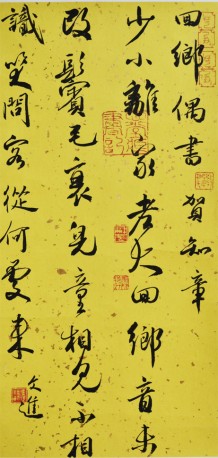 回鄉偶書 賀知章
少小離家老大回鄉音未
改鬢毛衰兒童相見不相
識笑問客從何處來
文進